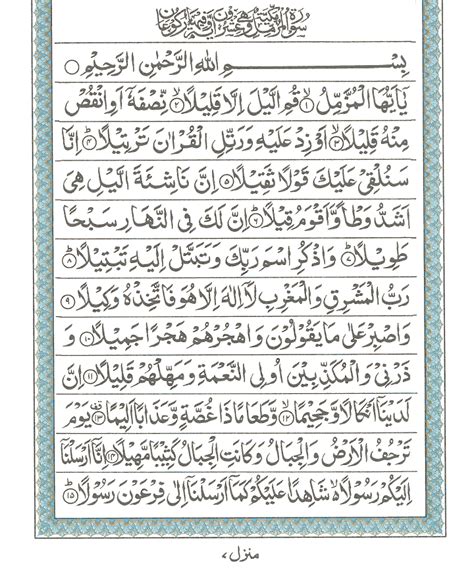 سورة المزمل مكية وهي عشرون آية وفيها ركوعان
بِسْمِ اللهِ الرَّحْمٰنِ الرَّحِيْمِ
يٰۤاَيُّهَا الْمُزَّمِّلُ ۙ‏﴿۱﴾ قُمِ الَّيْلَ اِلَّا قَلِيْلًا ۙ‏﴿۲﴾ نِّصْفَهٗۤ اَوِ انْقُصْ
مِنْهُ قَلِيْلًا ۙ‏﴿۳﴾ اَوْ زِدْ عَلَيْهِ وَرَتِّلِ الْقُرْاٰنَ تَرْتِيْلًا ؕ‏﴿۴﴾ اِنَّا
سَنُلْقِيْ عَلَيْكَ قَوْلًا ثَقِيْلًا ﴿۵﴾ اِنَّ نَاشِئَةَ الَّيْلِ هِيَ
اَشَدُّ وَطْاً وَّاَقْوَمُ قِيْلًا ؕ‏﴿۶﴾ اِنَّ لَكَ فِي النَّهَارِ سَبْحًا
طَوِيْلًا ؕ‏﴿۷﴾ وَاذْكُرِ اسْمَ رَبِّكَ وَتَبَتَّلْ اِلَيْهِ تَبْتِيْلًا ؕ‏﴿۸﴾
رَبُّ الْمَشْرِقِ وَالْمَغْرِبِ لَاۤ اِلٰهَ اِلَّا هُوَ فَاتَّخِذْهُ وَكِيْلًا ﴿۹﴾
وَاصْبِرْ عَلٰى مَا يَقُوْلُوْنَ وَاهْجُرْهُمْ هَجْرًا جَمِيْلًا ﴿۱۰﴾ وَ
ذَرْنِيْ وَالْمُكَذِّبِيْنَ اُولِي النَّعْمَةِ وَمَهِّلْهُمْ قَلِيْلًا ﴿۱۱﴾ اِنَّ
لَدَيْنَاۤ اَنْكَالًا وَّجَحِيْمًا ۙ‏﴿۱۲﴾ وَّطَعَامًا ذَا غُصَّةٍ وَّعَذَابًا اَلِيْمًا ﴿۱۳﴾ يَوْمَ
تَرْجُفُ الْاَرْضُ وَالْجِبَالُ وَكَانَتِ الْجِبَالُ كَثِيْبًا مَّهِيْلًا ﴿۱۴﴾ اِنَّاۤ اَرْسَلْنَاۤ
اِلَيْكُمْ رَسُوْلًا ۙ شَاهِدًا عَلَيْكُمْ كَمَاۤ اَرْسَلْنَاۤ اِلٰى فِرْعَوْنَ رَسُوْلًا ؕ‏﴿۱۵﴾
منزل ۷